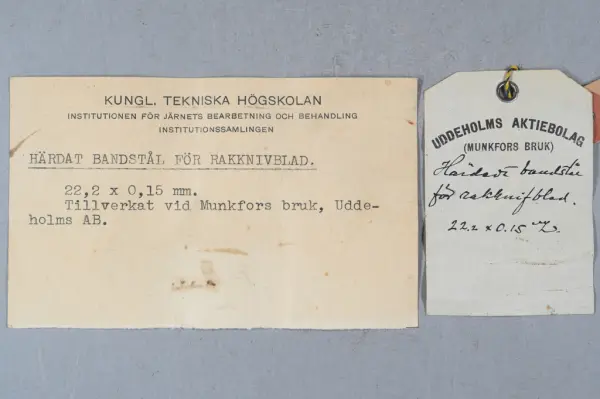 KUNGL. TEKNISKA HÖGSKOLAN
INSTITUTIONEN FÖR JÄRNETS BEARBETNING OCH BEHANDLING
INSTITUTIONSSAMLINGEN
HÄRDAT BANDSTÅL FÖR RAKKNIVBLAD.
22,2 x 0,15 mm.
Tillverkat vid Munkfors bruk, Udde-
holms AB.
UDDEHOLMS AKTIEBOLAG
(MUNKFORS BRUK)
Härdat bandstål
för rakknifblad.
22.2 x 0.15